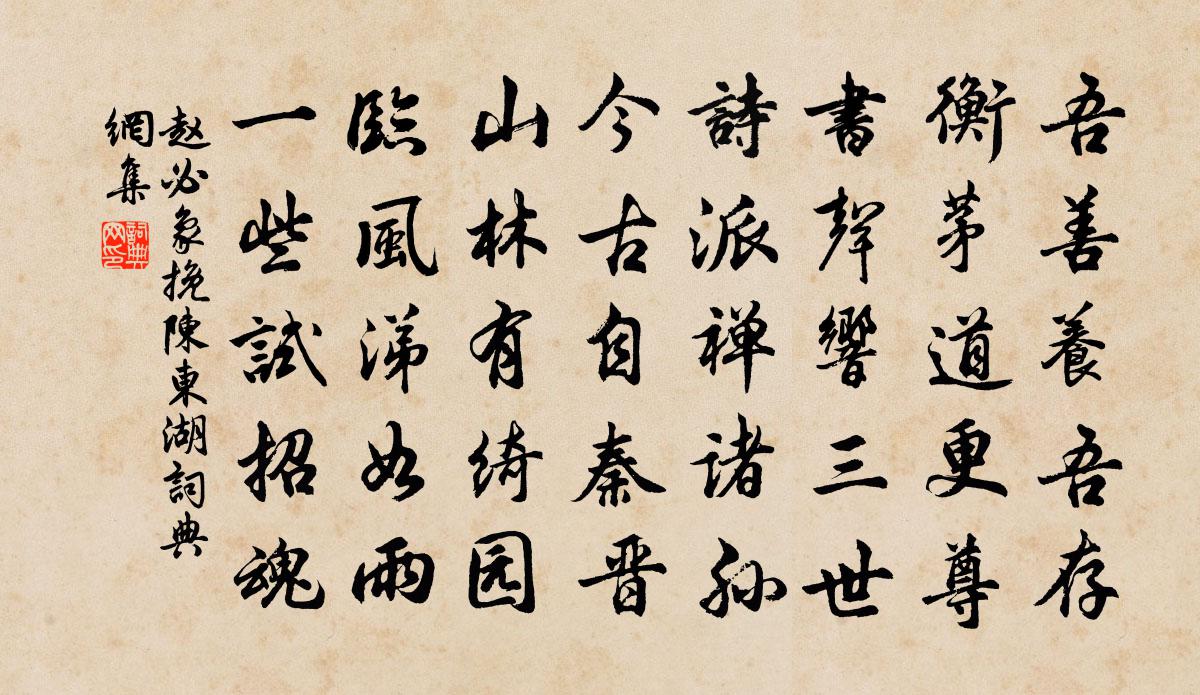 吾善養吾存
衡茅道更尊
書聲響三世
詩派禅诸孙
今古自秦晋
山林有绮园
臨風涕如雨
一些試招魂
赵必象挽陳東湖詞典
網集
詞典
网印